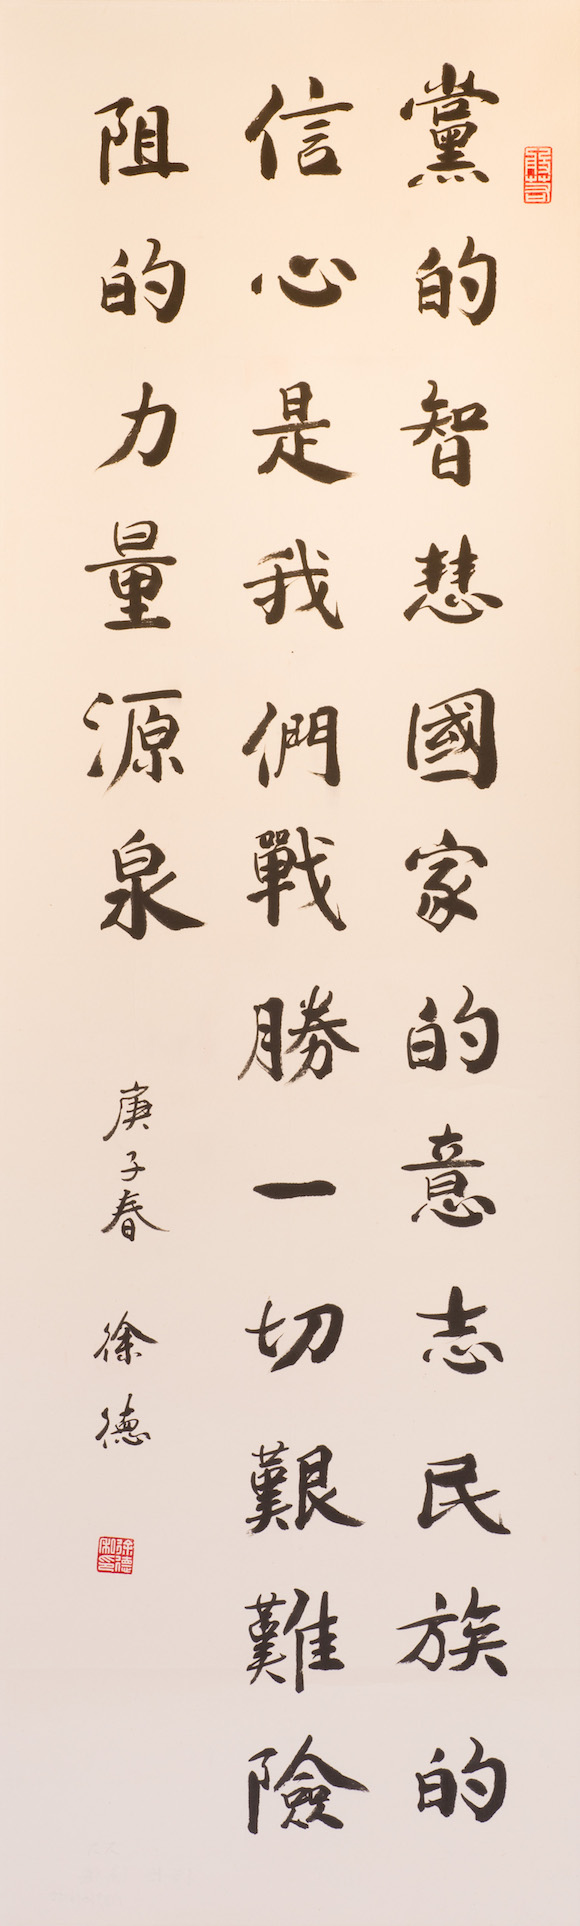 黨的智慧國家的意志民族的
信心是我們戰勝一切艱難險
阻的力量源泉
庚子春 徐德
徐德私印